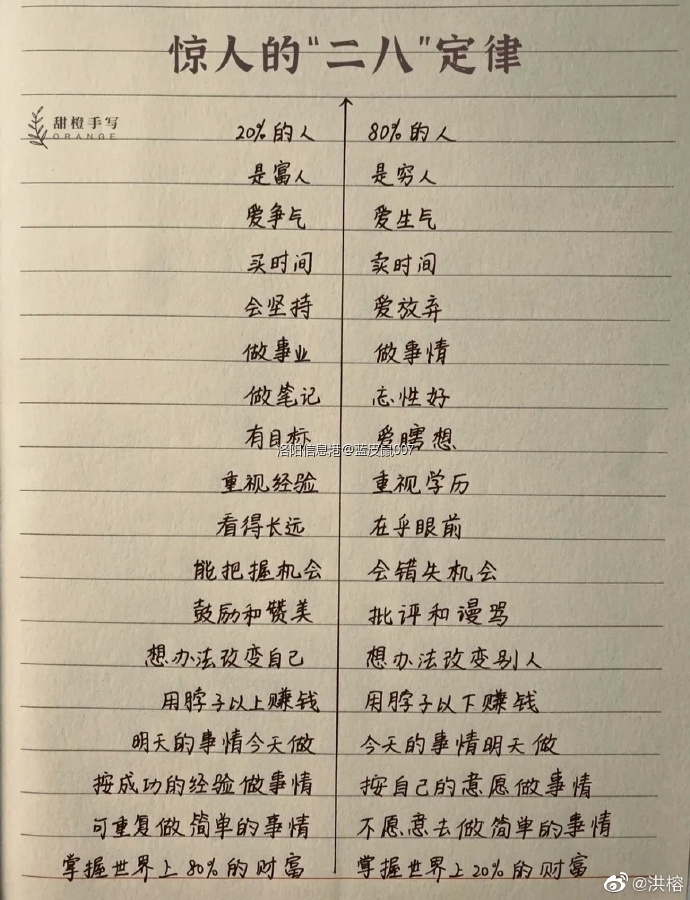 惊人的“二八”定律
甜橙手写
ORANGE
20%的人 80%的人
是富人 是穷人
爱争气 爱生气
买时间 卖时间
会坚持 爱放弃
做事业 做事情
做笔记 忘性好
有目标 爱瞎想
洛阳信息港@蓝皮鼠007
重视经验 重视学历
看得长远 在乎眼前
能把握机会 会错失机会
鼓励和赞美 批评和谩骂
想办法改变自己 想办法改变别人
用脖子以上赚钱 用脖子以下赚钱
明天的事情今天做 今天的事情明天做
按成功的经验做事情 按自己的意愿做事情
可重复做简单的事情 不愿意去做简单的事情
掌握世界上80%的财富 掌握世界上20%的财富
@洪榕